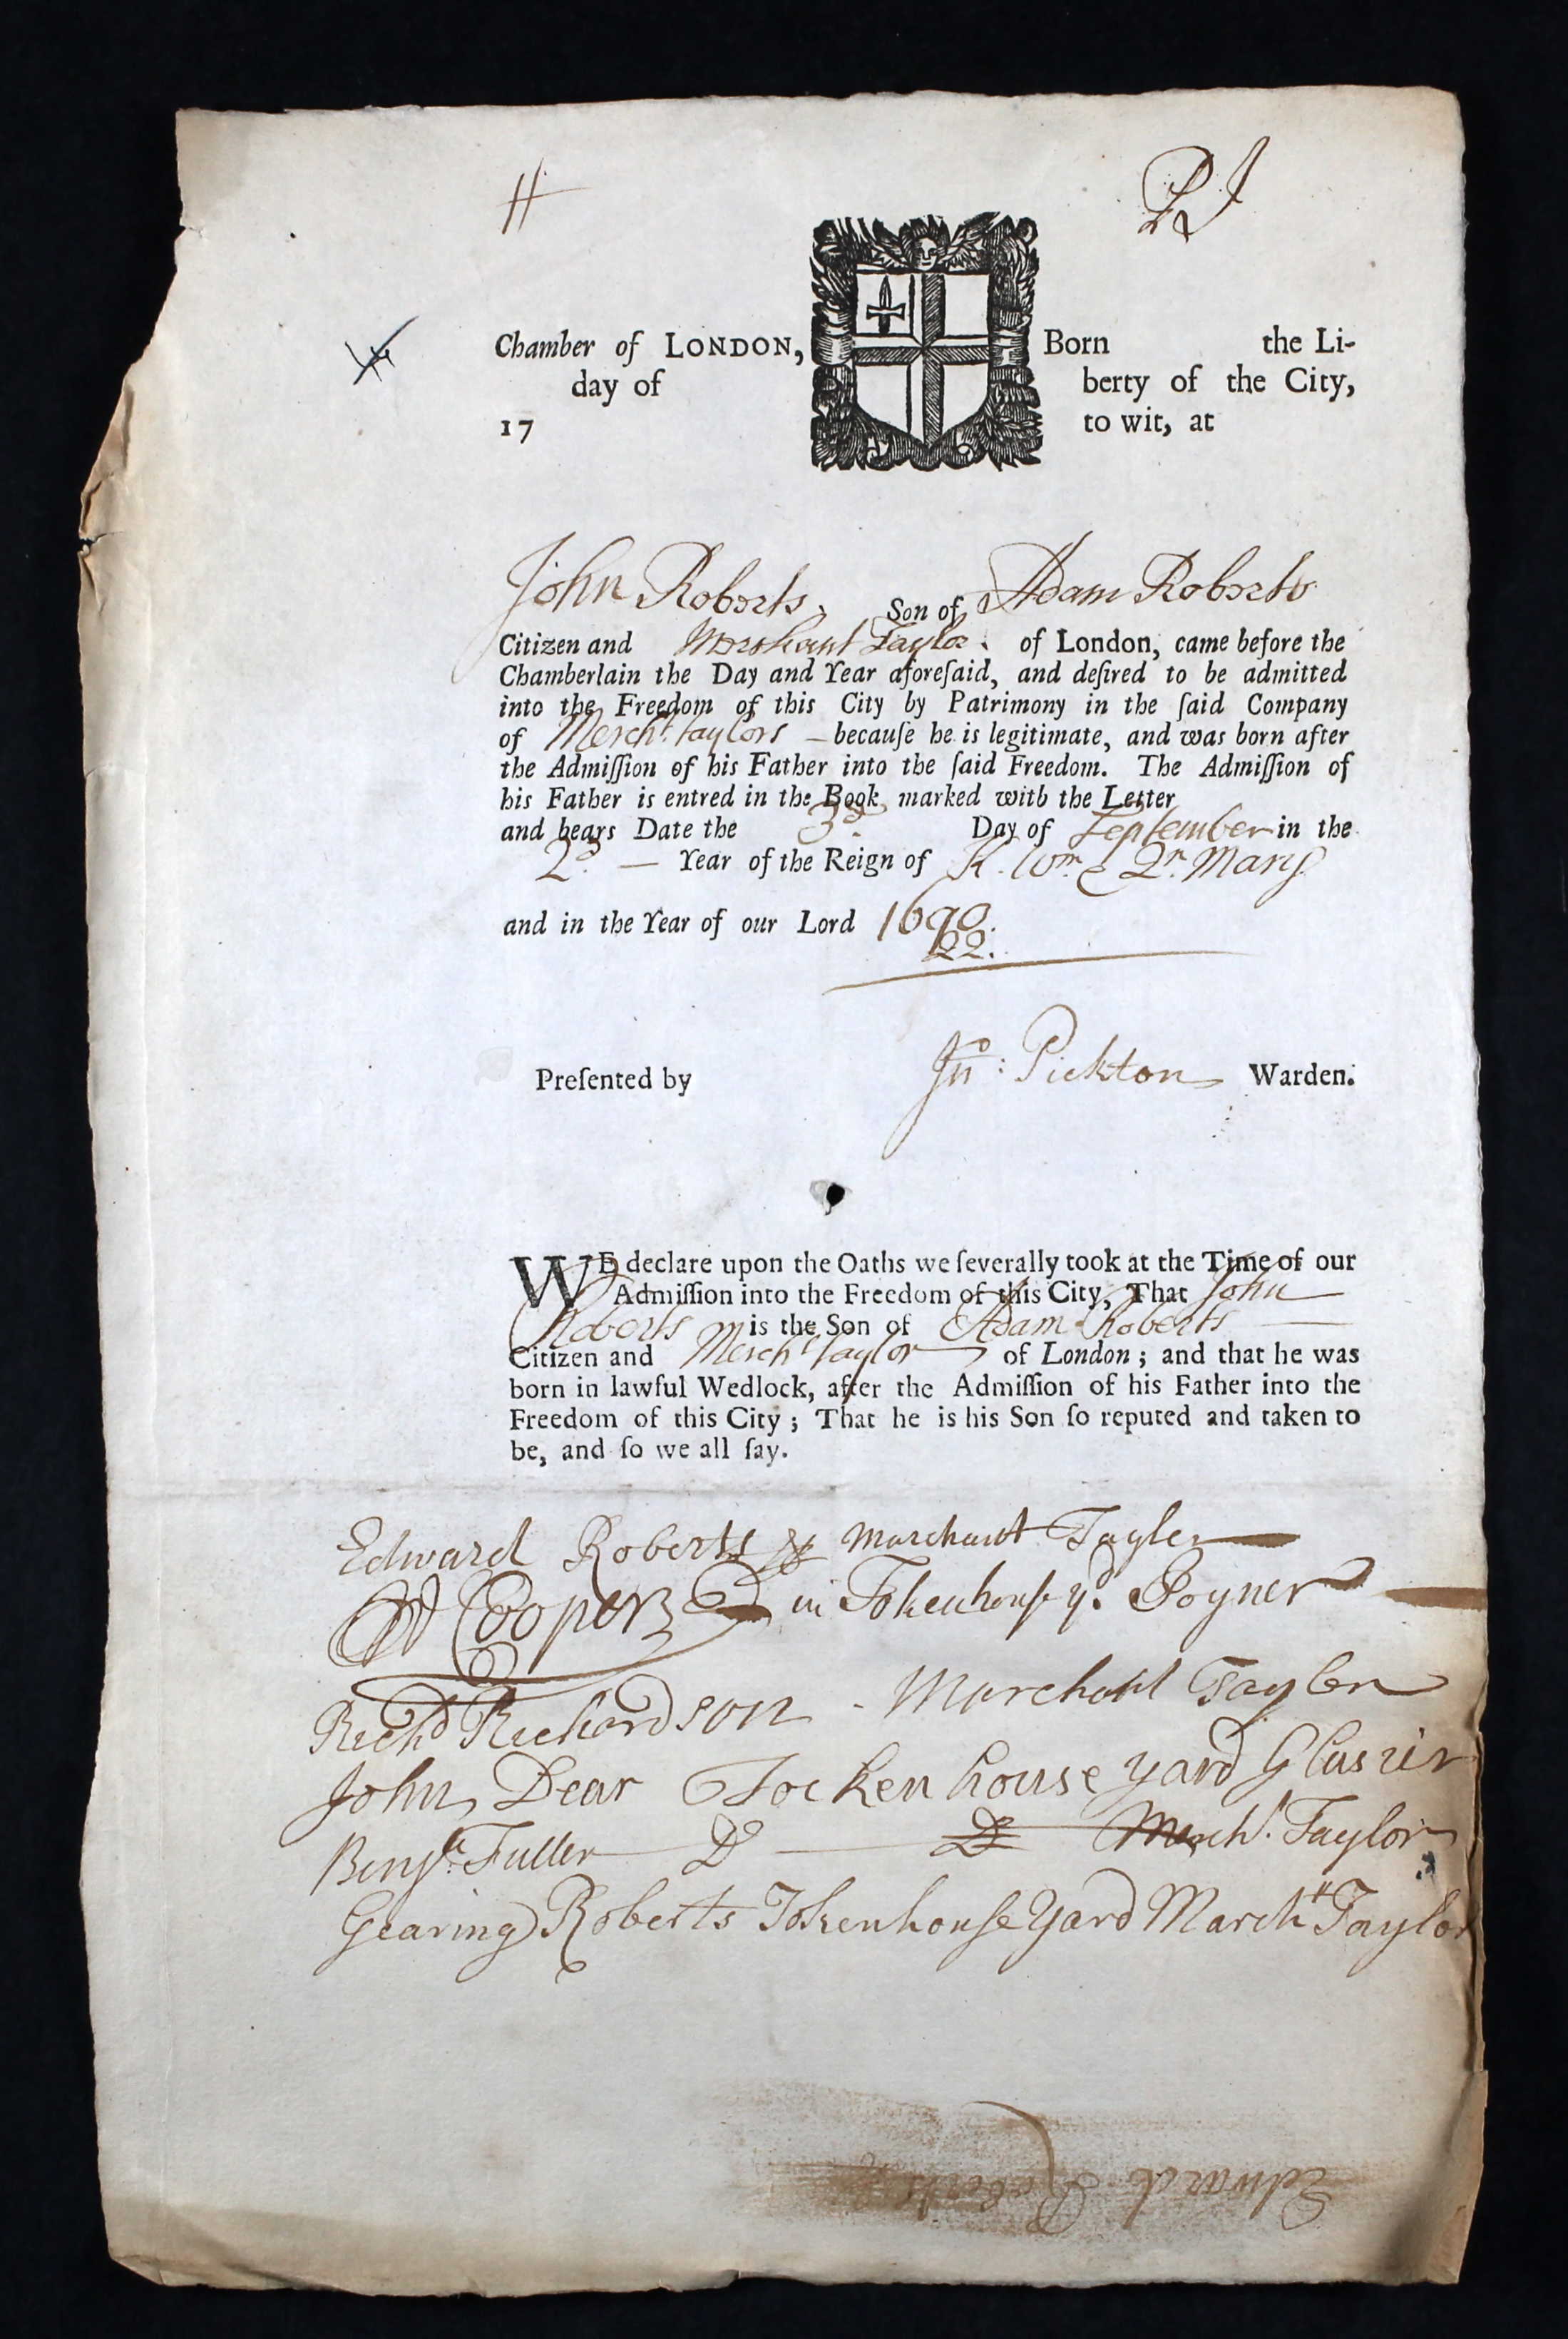 Chamber of LONDON,
day of
17
Born the Li-
berty of the City,
to wit, at
John Roberts, Son of Adam Roberts
Citizen and Merchant Taylor. of London, came before the
Chamberlain the Day and Year aforeſaid, and deſired to be admitted
into the Freedom of this City by Patrimony in the ſaid Company
of Mercht. taylors — becauſe he is legitimate, and was born after
the Admiſſion of his Father into the ſaid Freedom. The Admiſſion of
his Father is entred in the Book marked with the Letter
and bears Date the 3d. Day of September in the
2d. — Year of the Reign of K. Wm. & Qn. Mary
and in the Year of our Lord 1690.
22.
Preſented by Jno: Pickton Warden.
WE declare upon the Oaths we ſeverally took at the Time of our
Admiſſion into the Freedom of this City, That John
Roberts is the Son of Adam Roberts —
Citizen and Mercht taylor of London; and that he was
born in lawful Wedlock, after the Admiſſion of his Father into the
Freedom of this City; That he is his Son ſo reputed and taken to
be, and ſo we all ſay.
Edward Roberts Marchant Tayler
Cooper in Tokenhouſe yd. Joyner
Richd Richardson - Marchant Tayler
John Dear Tocken house yard Glasier
Benja. Fuller Do — Do Mercht. Taylor
Gearing Roberts Tokenhouſe Yard Marcht Taylor
Edward Roberts